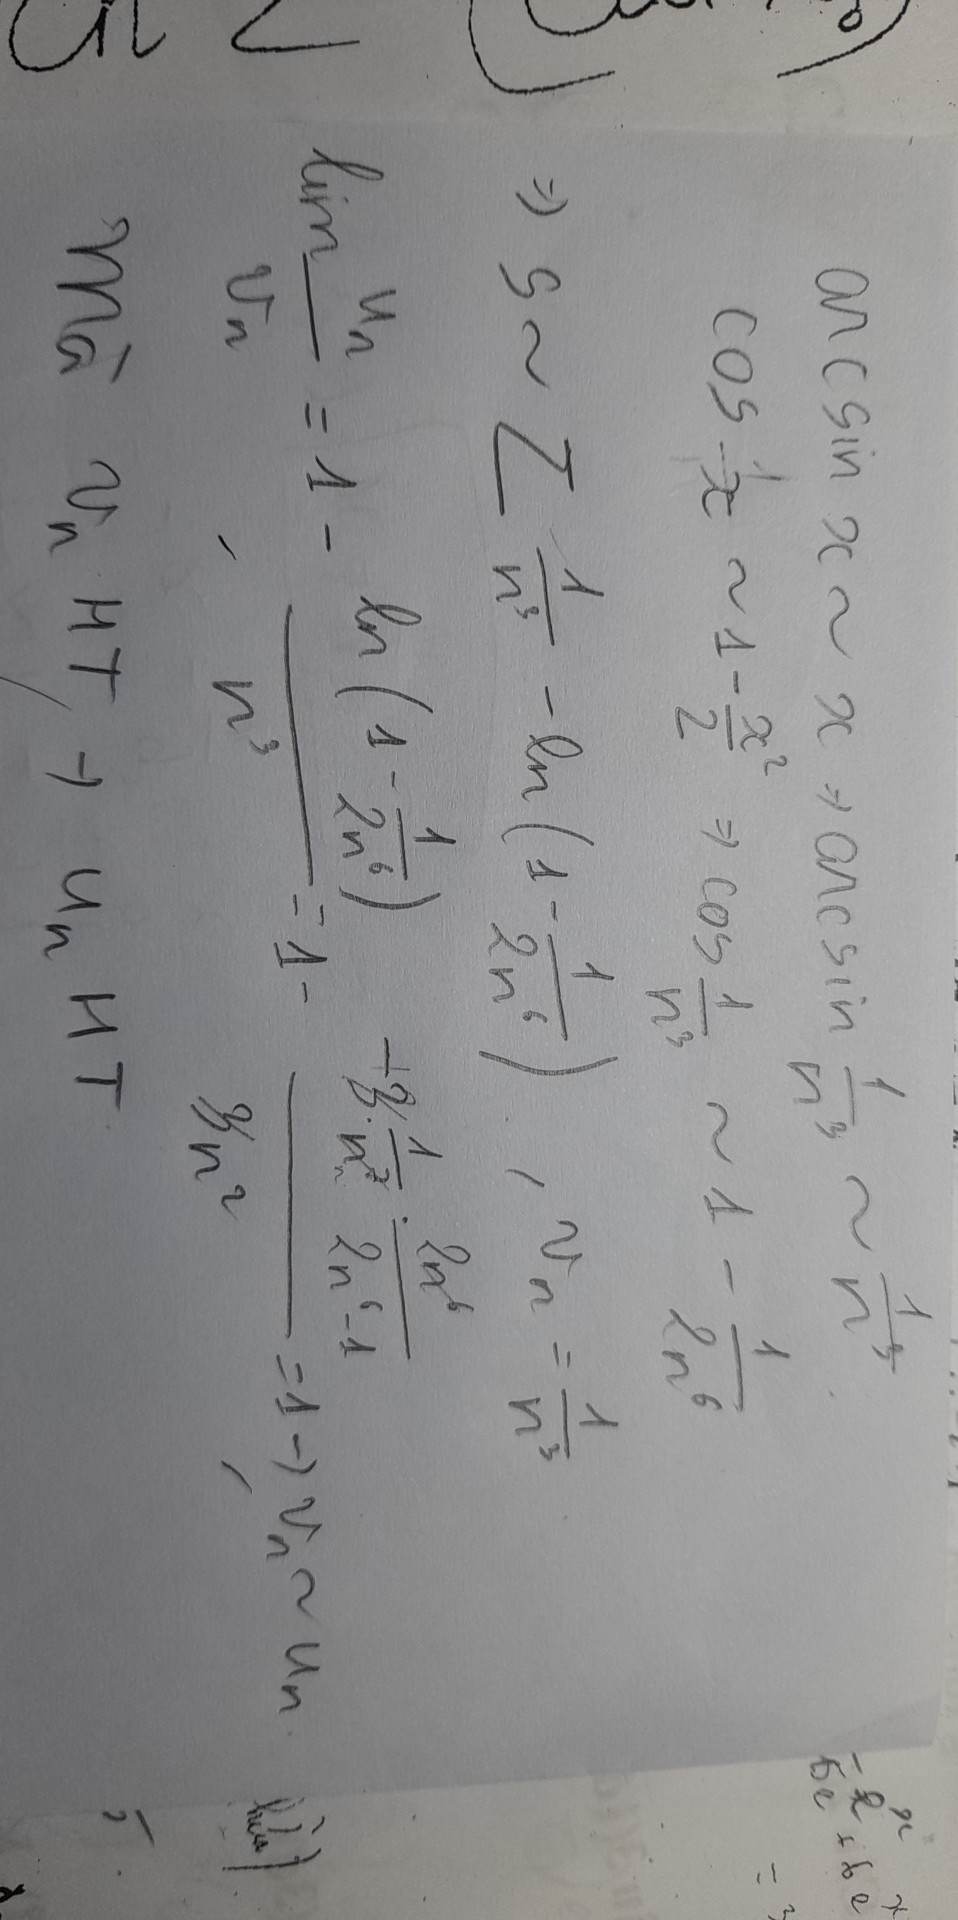 arcsin x ~ x ⇒ arcsin 1/n³ ~ 1/n³
cos x ~ 1 - x²/2 ⇒ cos 1/n³ ~ 1 - 1/2n⁶
⇒ S ~ Σ 1/n³ - ln(1 - 1/2n⁶), vₙ = 1/n³
lim uₙ/vₙ = 1 - ln(1 - 1/2n⁶)/n³ = 1 - (3 · 1/n⁷ · 2n⁶/(2n⁶-1))/3n² = 1 → vₙ ~ uₙ
Mà vₙ HT → uₙ HT